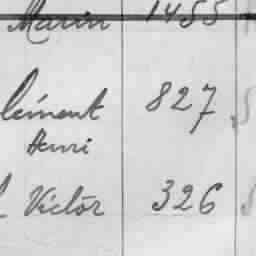 Marin 1455
lément 827
Henri
Victor 326